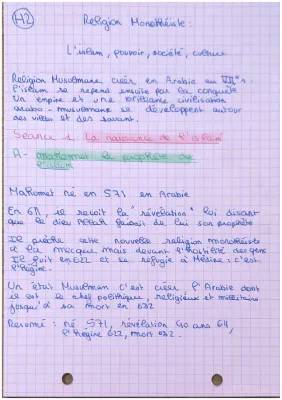 H2
Religion Monothéiste :
L'islam, pouvoir, société, culture
Religion Musulmane créer en Arabie au VIIe s.
l'islam se repend ensuite par la conquête
Un empire et une brillante civilisation
arabo-musulmane se développent autour
des villes et des savant.
Séance 1. La naissance de l'islam
A- Mahomet la prophète de
l'islam
Mahomet né en 571 en Arabie
En 611 il se reçoit la "révélation" lui disant
que le dieu Allah faisait de lui son prophète
Il prêche cette nouvelle religion monothéiste
a la mecque mais devant l'hostilité des gens
Il fuit en 622 et se refugie à Médine : c'est
l'Hégire.
Un état Musulman c'est créer l'Arabie dont
il est le chef politique, religieux et militaire
jusqu'a sa mort en 632
Resumé : né 571, révélation 40 ans 611,
l'Hegire 622, mort 632.